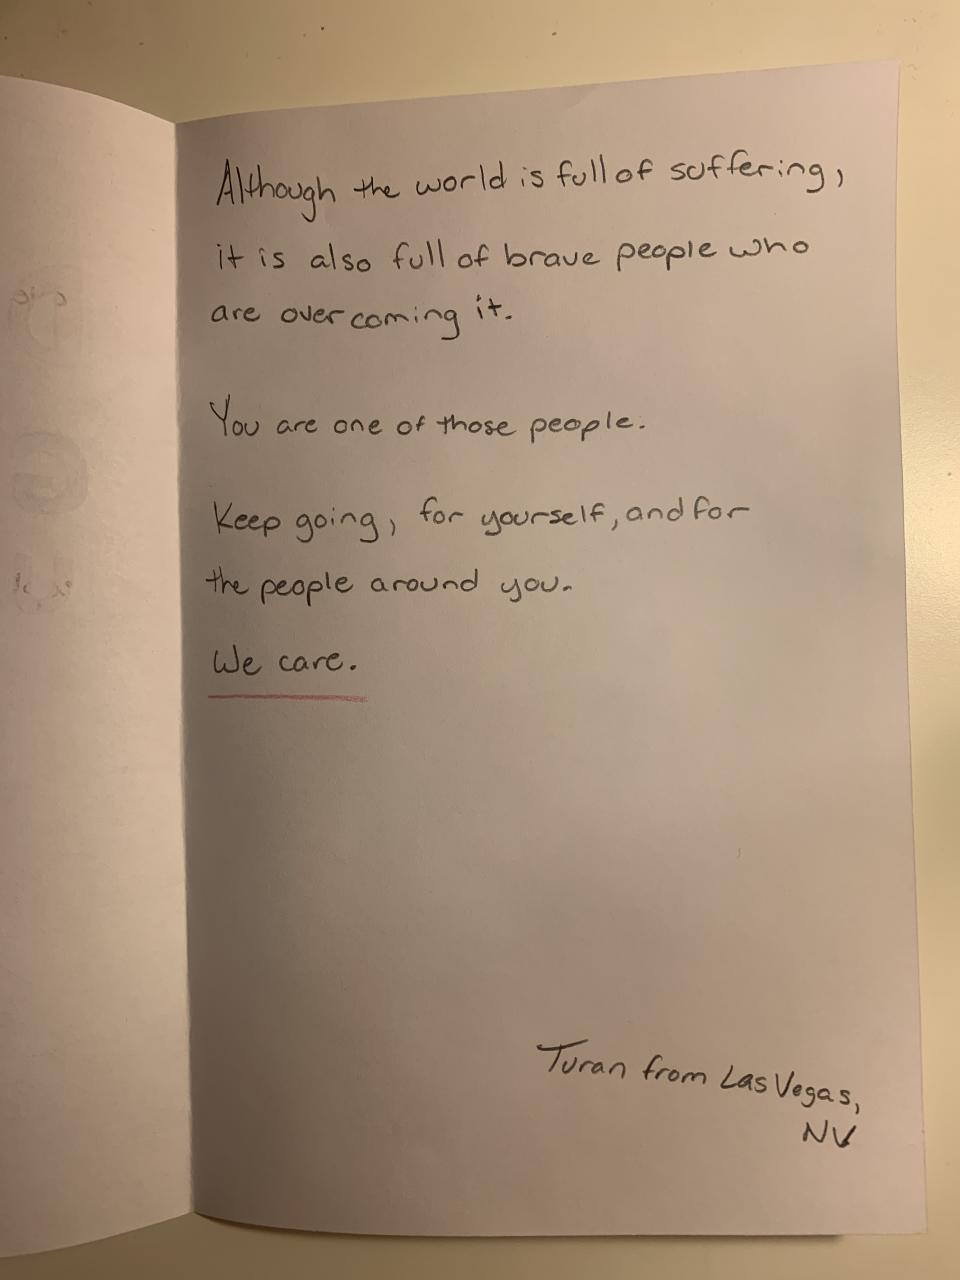 Although the world is full of suffering,
it is also full of brave people who
are overcoming it.
You are one of those people.
Keep going, for yourself, and for
the people around you.
We care.
Turan from Las Vegas,
NV